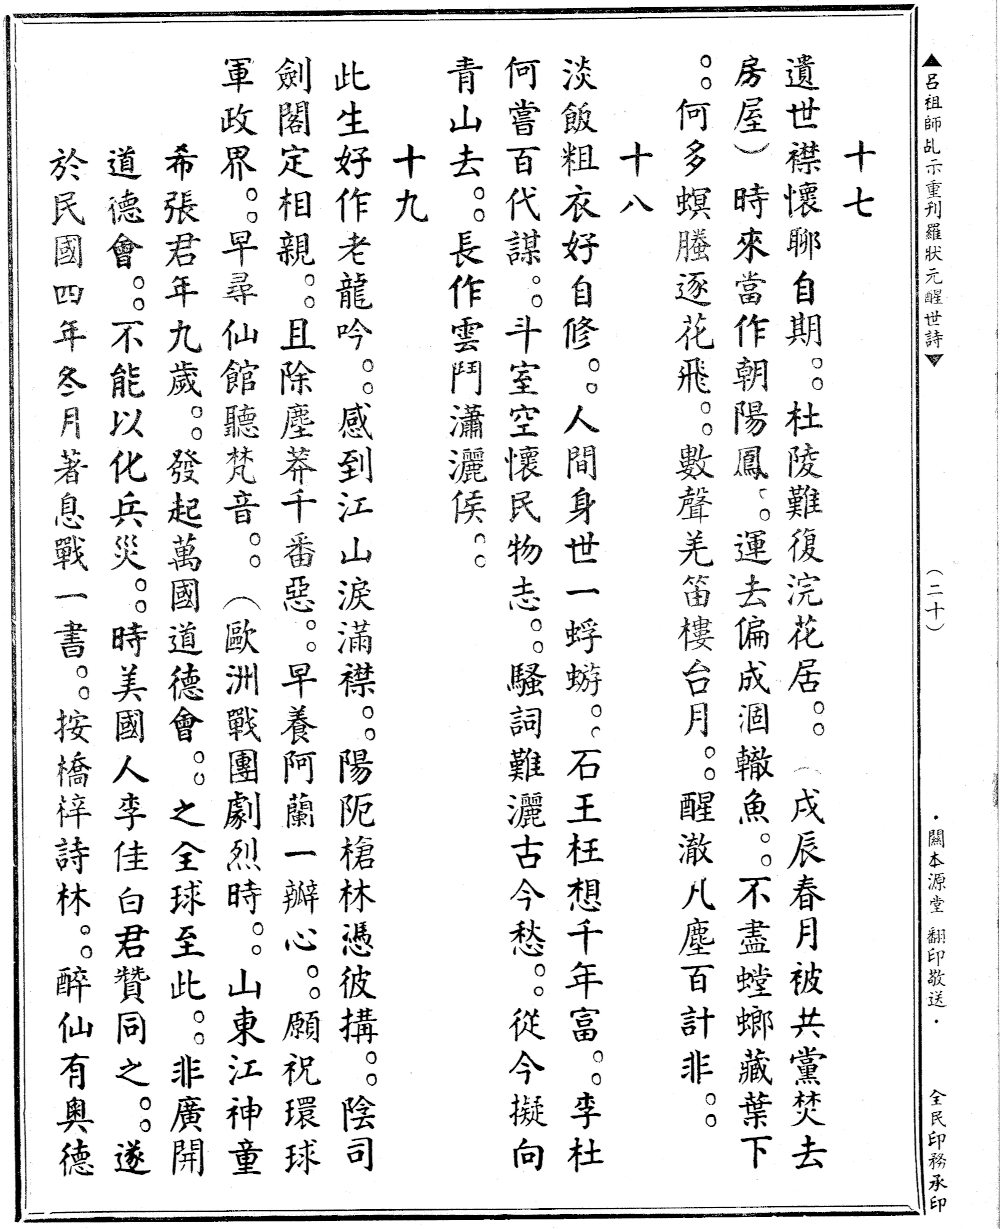 ▲呂祖師乩示重刊羅狀元醒世詩▼
（二十）
・關本源堂 翻印敬送・
全民印務承印
十七
遺世襟懷聊自期。。杜陵難復浣花居。。（戌辰春月被共黨焚去
房屋）時來當作朝陽鳳。。運去偏成涸轍魚。。不盡螳螂藏葉下
。。何多螟螣逐花飛。。數聲羌笛樓台月。。醒澈凡塵百計非。。
十八
淡飯粗衣好自修。。人間身世一蜉蝣。。石王枉想千年富。。李杜
何嘗百代謀。。斗室空懷民物志。。騷詞難灑古今愁。。從今擬向
青山去。。長作雲鬥瀟灑侯。。
十九
此生好作老龍吟。。感到江山淚滿襟。。陽阨槍林憑彼搆。。陰司
劍閣定相親。。且除塵莽千番惡。。早養阿蘭一瓣心。。願祝環球
軍政界。。早尋仙館聽梵音。。（歐洲戰團劇烈時。。山東江神童
希張君年九歲。。發起萬國道德會。。之全球至此。。非廣開
道德會。。不能以化兵災。。時美國人李佳白君贊同之。。遂
於民國四年冬月著息戰一書。。按橋梓詩林。。醉仙有奧德